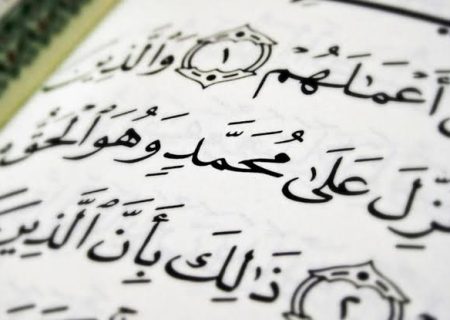 أَعْمَـٰلَهُمْ ١ وَالَّذِينَ
نُزِّلَ عَلَىٰ مُحَمَّدٍ وَهُوَ الْحَقُّ
ذَٰلِكَ بِأَنَّ الَّذِينَ
٢